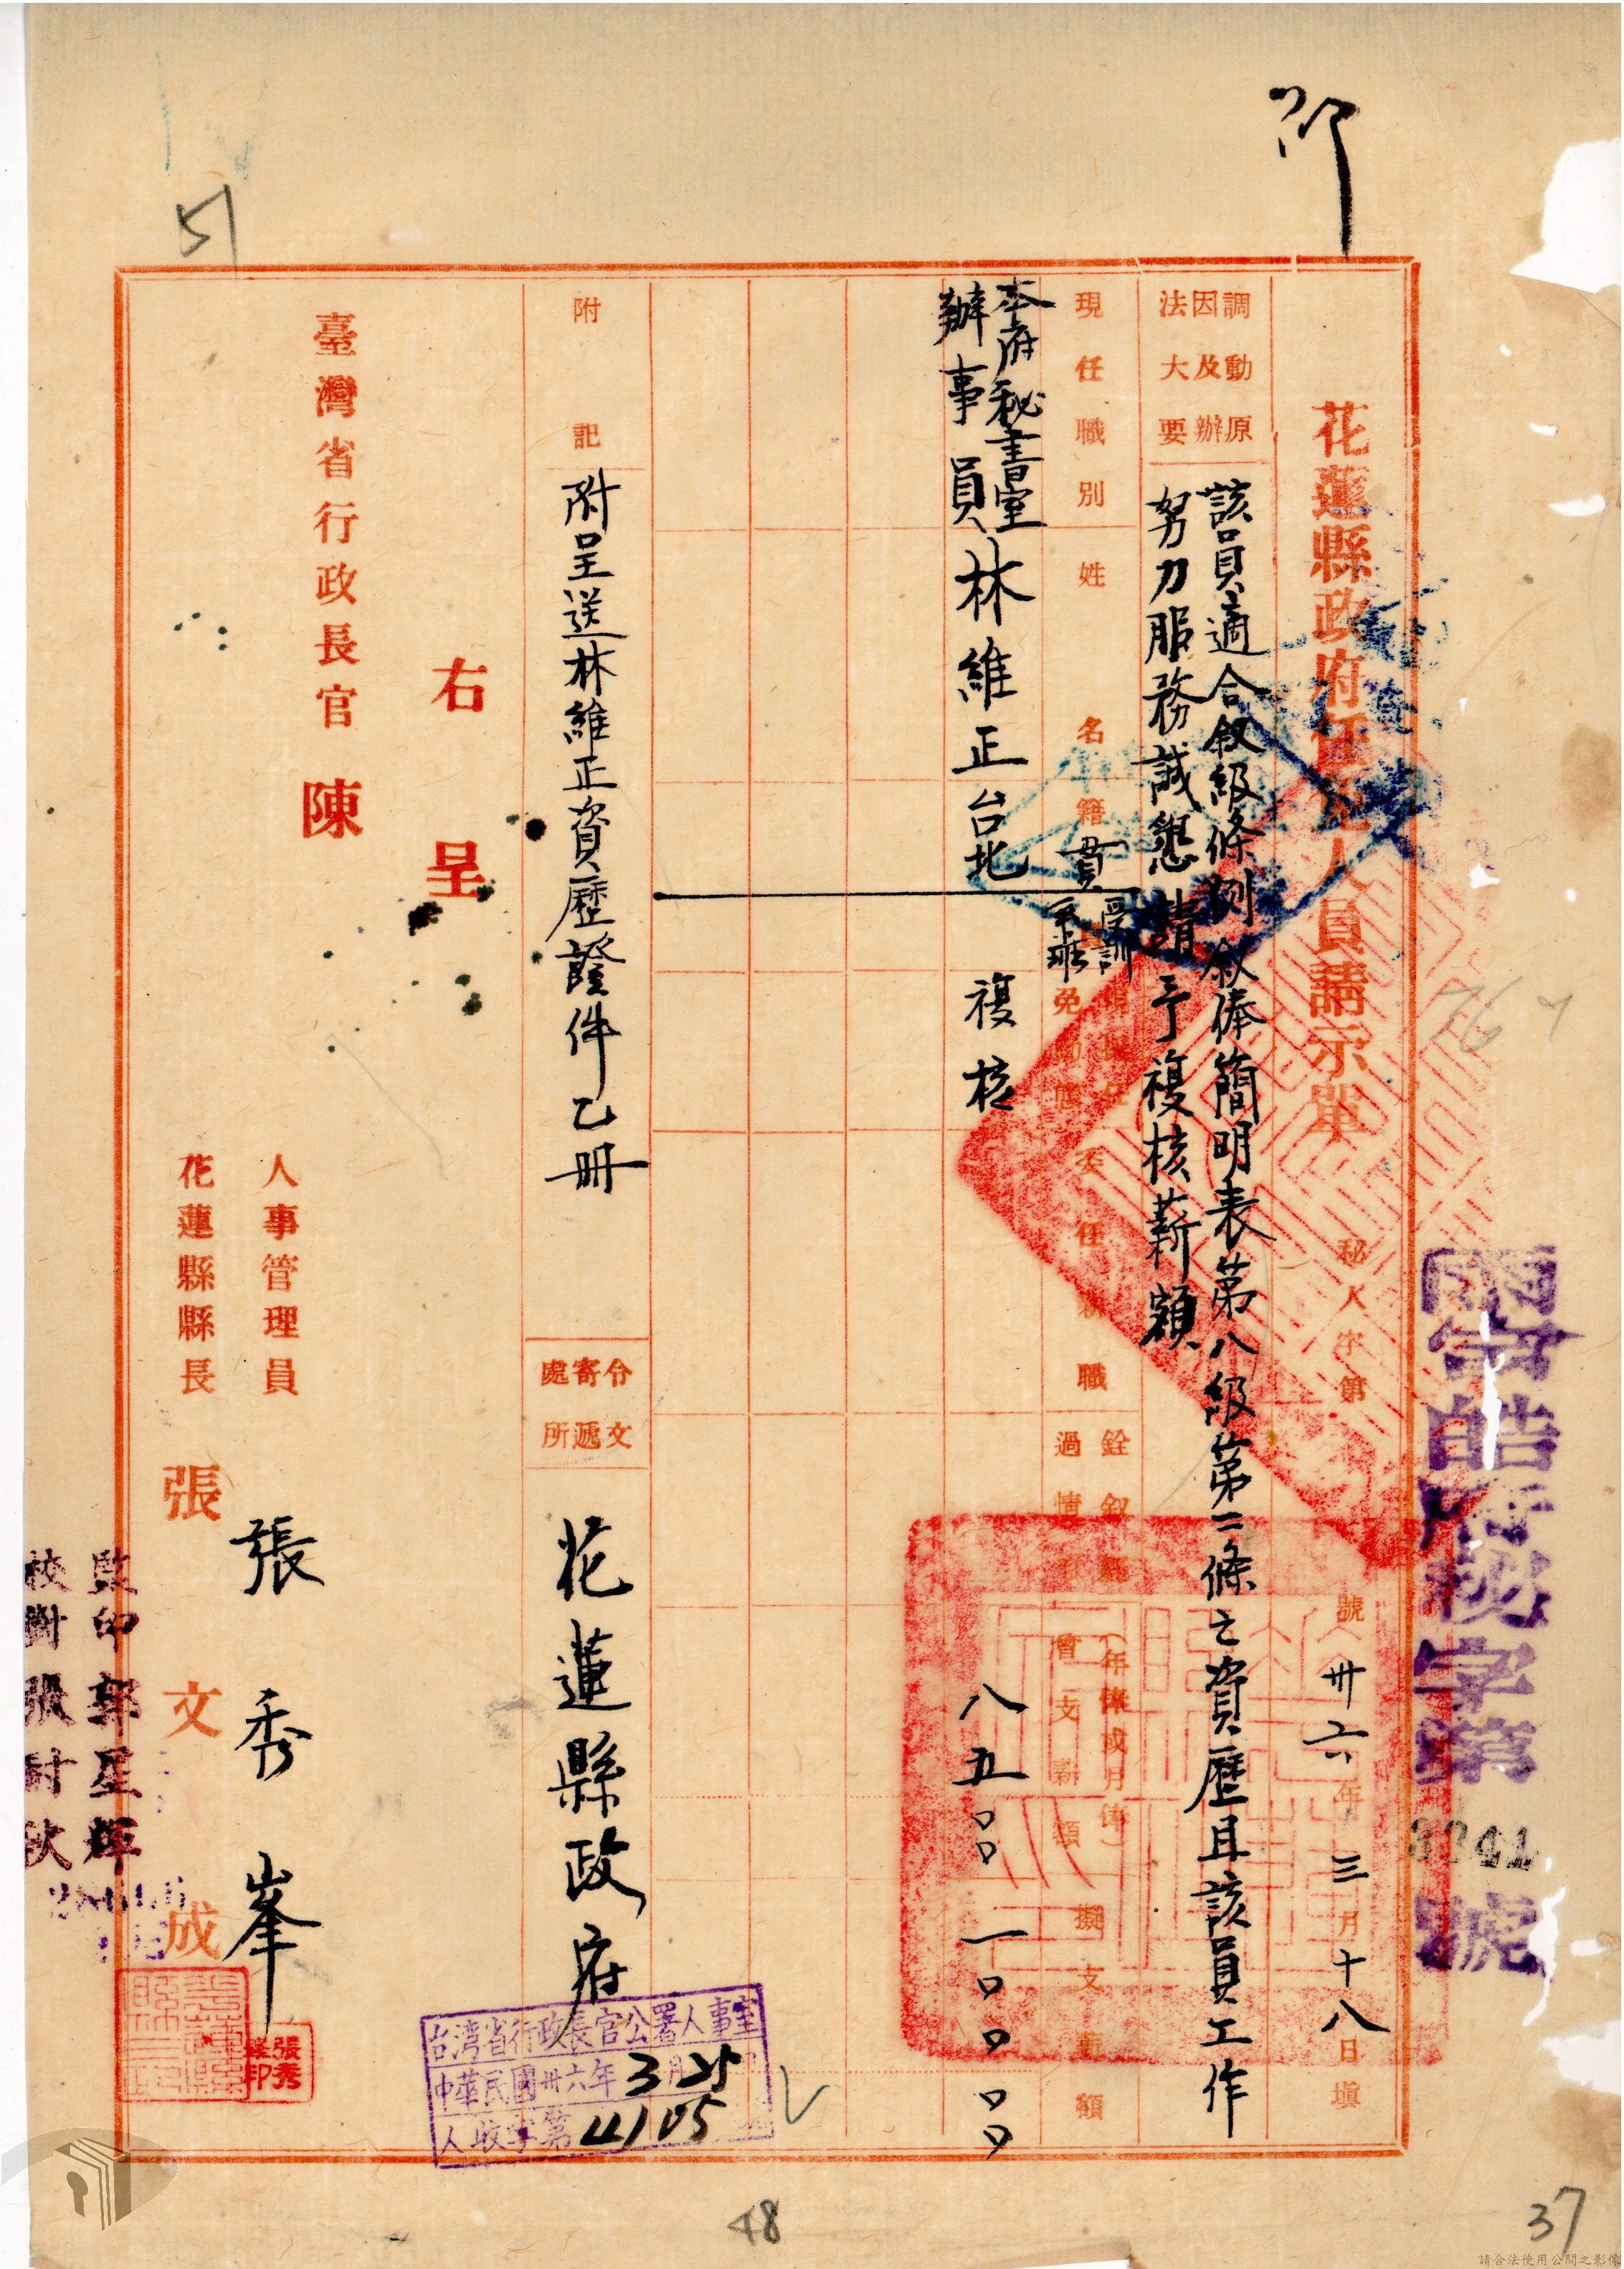 花蓮縣政府任免人員請示單
秘人字第
號
卅六年三月十八日填
寅皓府秘字第3241號
調動原因及辦法大要
該員適合敘級條例敘俸簡明表第八級第二條之資歷且該員工作
努力服務誠懇請予複核薪額
現任職別
姓名
籍貫
受訓
班
免動態
委任
職
銓敘
(年俸或月俸)
曾支薪額
擬支薪額
本府秘書室
辦事員
林維正
台北
複核
八五〇〇
一〇〇〇〇
附記
附呈送林維正資歷證件乙冊
令文寄遞處所
花蓮縣政府
右呈
臺灣省行政長官陳
人事管理員
張秀峯
花蓮縣縣長張文成
監印郭星輝
校對張計秋
張秀峯印
台湾省行政長官公署人事室
中華民國卅六年3月25
人收字第4105
51
48
37
請合法使用公開之影像